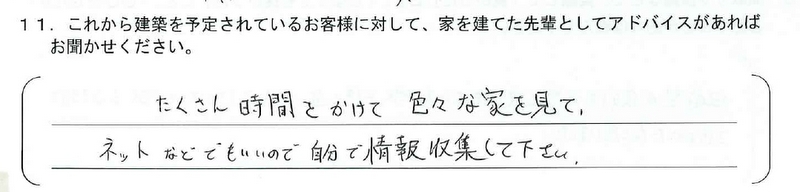 11．これから建築を予定されているお客様に対して、家を建てた先輩としてアドバイスがあれば
お聞かせください。
たくさん時間とかけて 色々な家を見て、
ネットなどでもいいので自分で情報収集して下さい。